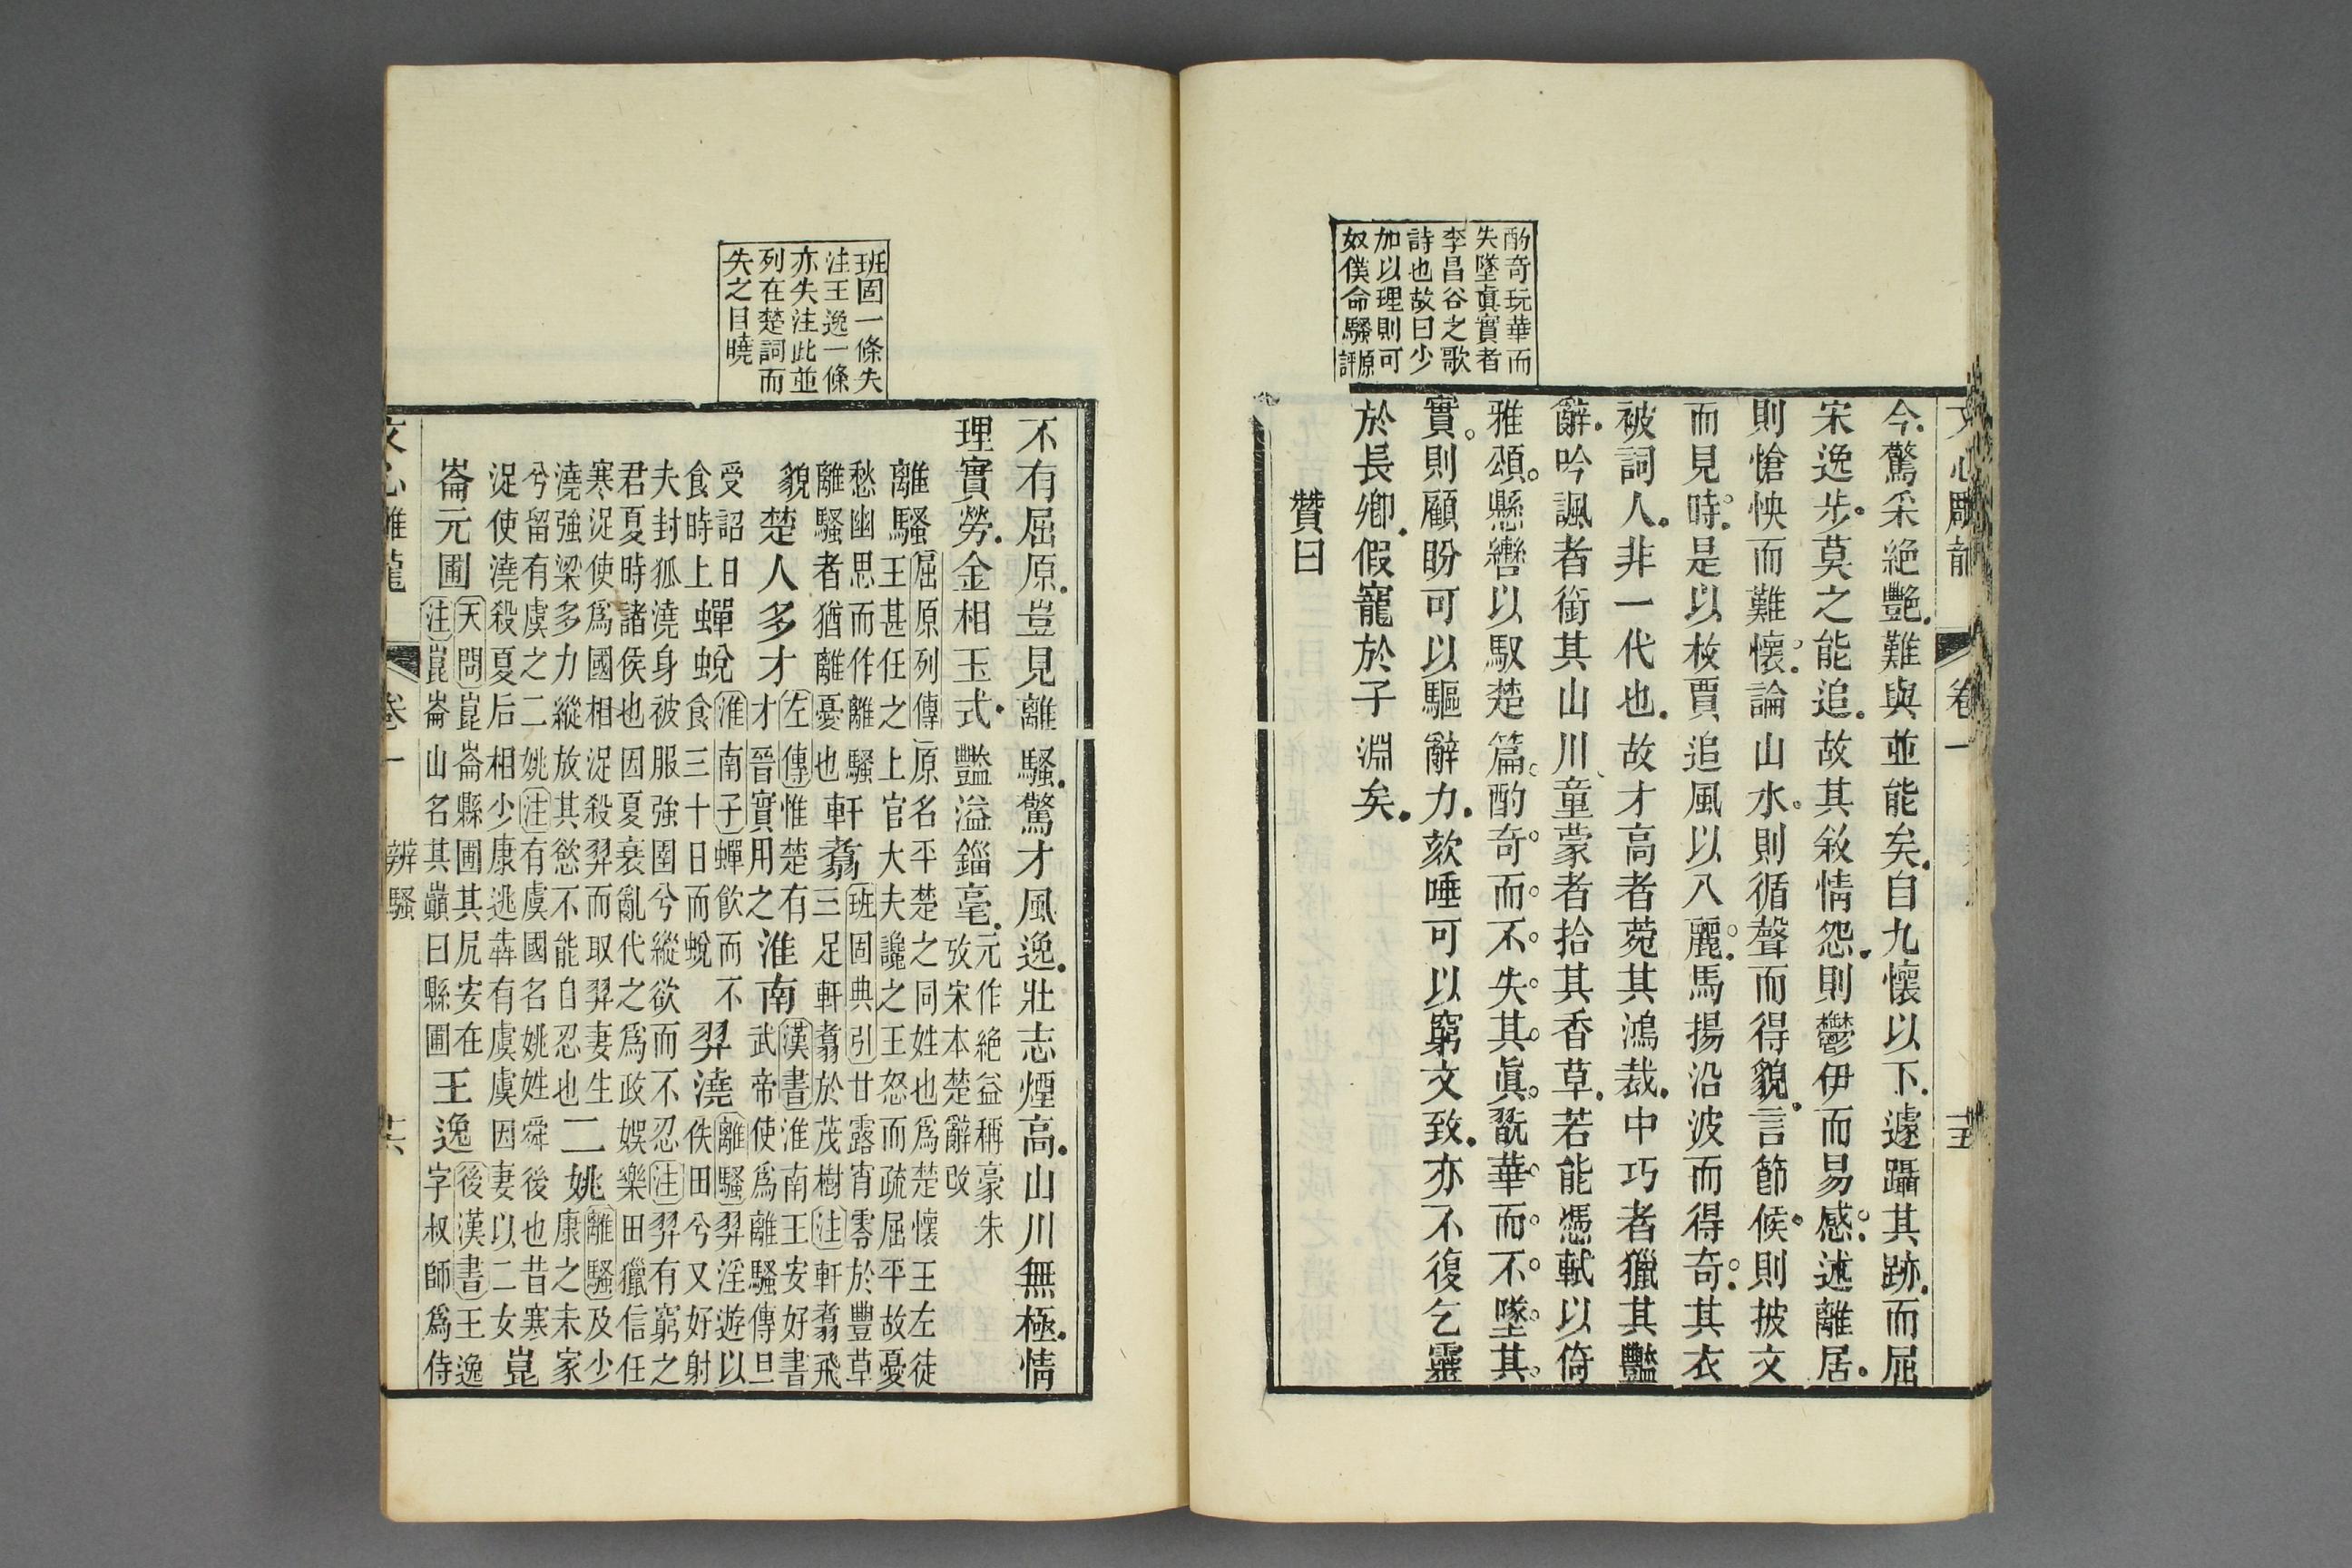 文心雕龍 卷一
酌奇玩華而
失墜眞實者
李昌谷之歌
詩也故曰少
加以理則可
奴僕命騷原評
今驚采絕艷難與並能矣自九懷以下遽躡其跡而屈
宋逸步莫之能追故其敘情怨則鬱伊而易感述離居
則愴怏而難懷論山水則循聲而得貌言節候則披文
而見時是以枚賈追風以入麗馬揚沿波而得奇其衣
被詞人非一代也故才高者菀其鴻裁中巧者獵其豔
辭吟諷者銜其山川童蒙者拾其香草若能憑軾以倚
雅頌懸轡以馭楚篇酌奇而不失其眞翫華而不墜其
實則顧盼可以驅辭力欬唾可以窮文致亦不復乞靈
於長卿假寵於子淵矣
贊曰
班固一條失
注王逸一條
亦失注此並
列在楚詞而
失之目曉
不有屈原豈見離騷驚才風逸壯志煙高山川無極情
理實勞金相玉式豔溢錙毫元作絕益稱豪朱攷宋本楚辭改
離騷屈原列傳原名平楚之同姓也爲楚懷王左徒王甚任之上官大夫讒之王怒而疏屈平故憂
愁幽思而作離騷離騷者猶離憂也軒翥班固典引甘露宵零於豐草三足軒翥於茂樹注軒翥飛
貌楚人多才左傳惟楚有才晉實用之淮南漢書淮南王安好書武帝使爲離騷傳旦
受詔日食時上蟬蛻淮南子蟬飲而不食三十日而蛻羿澆離騷羿淫遊以佚田兮又好射
夫封狐澆身被服強圉兮縱欲而不忍注羿有窮之君夏時諸侯也因夏衰亂代之爲政娛樂田獵信任
寒浞使爲國相浞殺羿而取羿妻生澆強梁多力縱放其慾不能自忍也二姚離騷及少康之未家
兮留有虞之二姚注有虞國名姚姓舜後也昔寒浞使澆殺夏后相少康逃犇有虞虞因妻以二女崑
崙元圃天問崑崙縣圃其凥安在注崑崙山名其巔曰縣圃王逸後漢書王逸字叔師爲侍
文心雕龍 卷一 辨騷